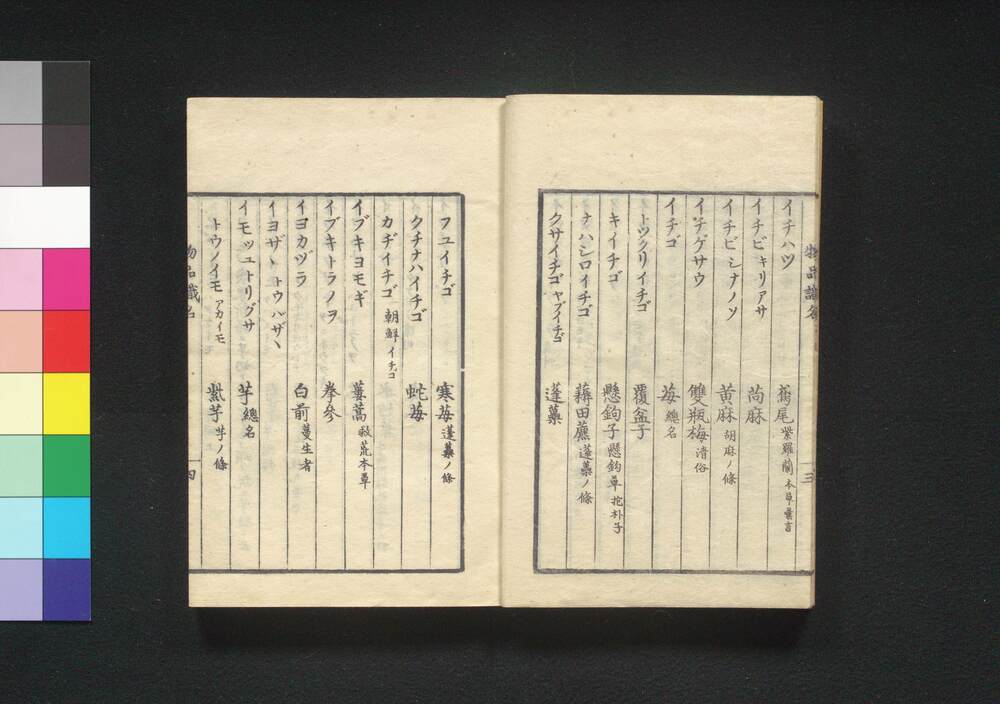 イチハツ 鳶尾 紫羅蘭 本草彙言
イチビキリアサ 茼麻
イチビシナノツ 黄麻 胡麻ノ條
イチゲサウ 雙瓶梅 清俗
イチゴ 苺 總名
トツクリイチゴ 覆盆子
キイチゴ 懸鉤子 懸鈎草 抱朴子
ナハシロイチゴ 藨田藨 蓬虆ノ條
クサイチゴ ヤブイチゴ 蓬虆
フユイチゴ 寒苺 蓬虆ノ條
クチナハイチゴ 蛇苺
カヂイチゴ 朝鮮イチゴ
イブキヨモギ 蔞蒿 救荒本草
イブキトラノヲ 拳參
イヨカヅラ 白前 蔓生者
イヨザヽ トウハザヽ
イモツユトリグサ 芋 總名
トウノイモ アカイモ 紫芋 芋ノ條
物品識名
四
物品識名
三